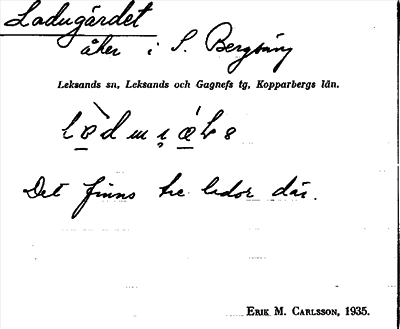 Ladugårdet
åker i S. Bergsäng
Leksands sn, Leksands och Gagnefs tg, Kopparbergs län.
Det finns tre lador där.
ERIK M. CARLSSON, 1935.